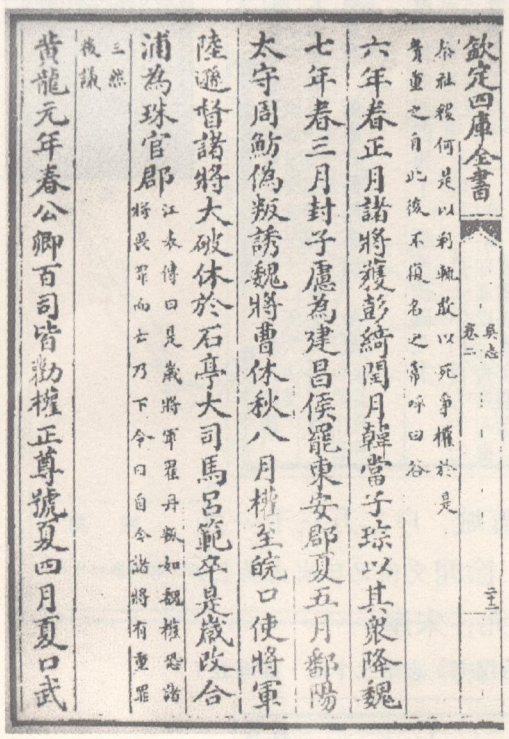 欽定四庫全書
吳志
卷二
奈社稷何是以利輒敢以死爭權於是
貴重之自此後不復名之常呼曰谷
六年春正月諸將獲彭綺閏月韓當子琮以其衆降魏
七年春三月封子慮為建昌侯罷東安郡夏五月鄱陽
太守周魴偽叛誘魏將曹休秋八月權至皖口使將軍
陸遜督諸將大破休於石亭大司馬呂範卒是歲改合
浦為珠官郡
江表傳曰是歲將軍翟丹叛如魏權恐諸
將畏罪而亡乃下令曰自今諸將有重罪
三然
後議
黃龍元年春公卿百司皆勸權正尊號夏四月夏口武